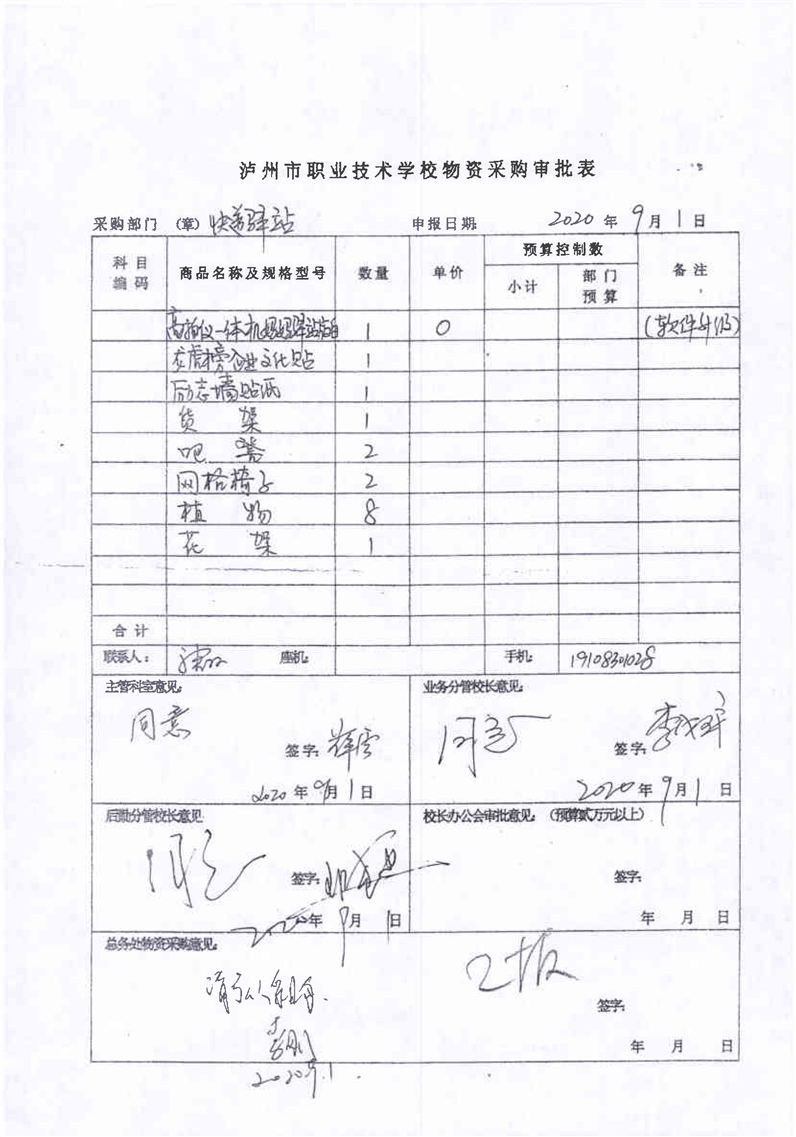 泸州市职业技术学校物资采购审批表
采购部门 (章) 快递驿站 申报日期: 2020 年 9 月 1 日
科目编码 商品名称及规格型号 数量 单价 预算控制数 备注
小计 部门预算
高拍仪一体机 1 0 (软件升级)
龙虎榜企业文化贴 1
励志墙贴纸 1
货架 1
吧凳 2
网格椅子 2
植物 8
花架 1
合计
联系人: 座机: 手机: 19108301028
主管科室意见: 业务分管校长意见:
同意 同意
签字: 签字:
2020 年 9 月 1 日 2020 年 9 月 1 日
后勤分管校长意见: 校长办公会审批意见: (预算贰万元以上)
同意 签字: 签字:
2020 年 9 月 1 日 年 月 日
总务处物资采购意见:
签字:
年 月 日
2020.9.1.